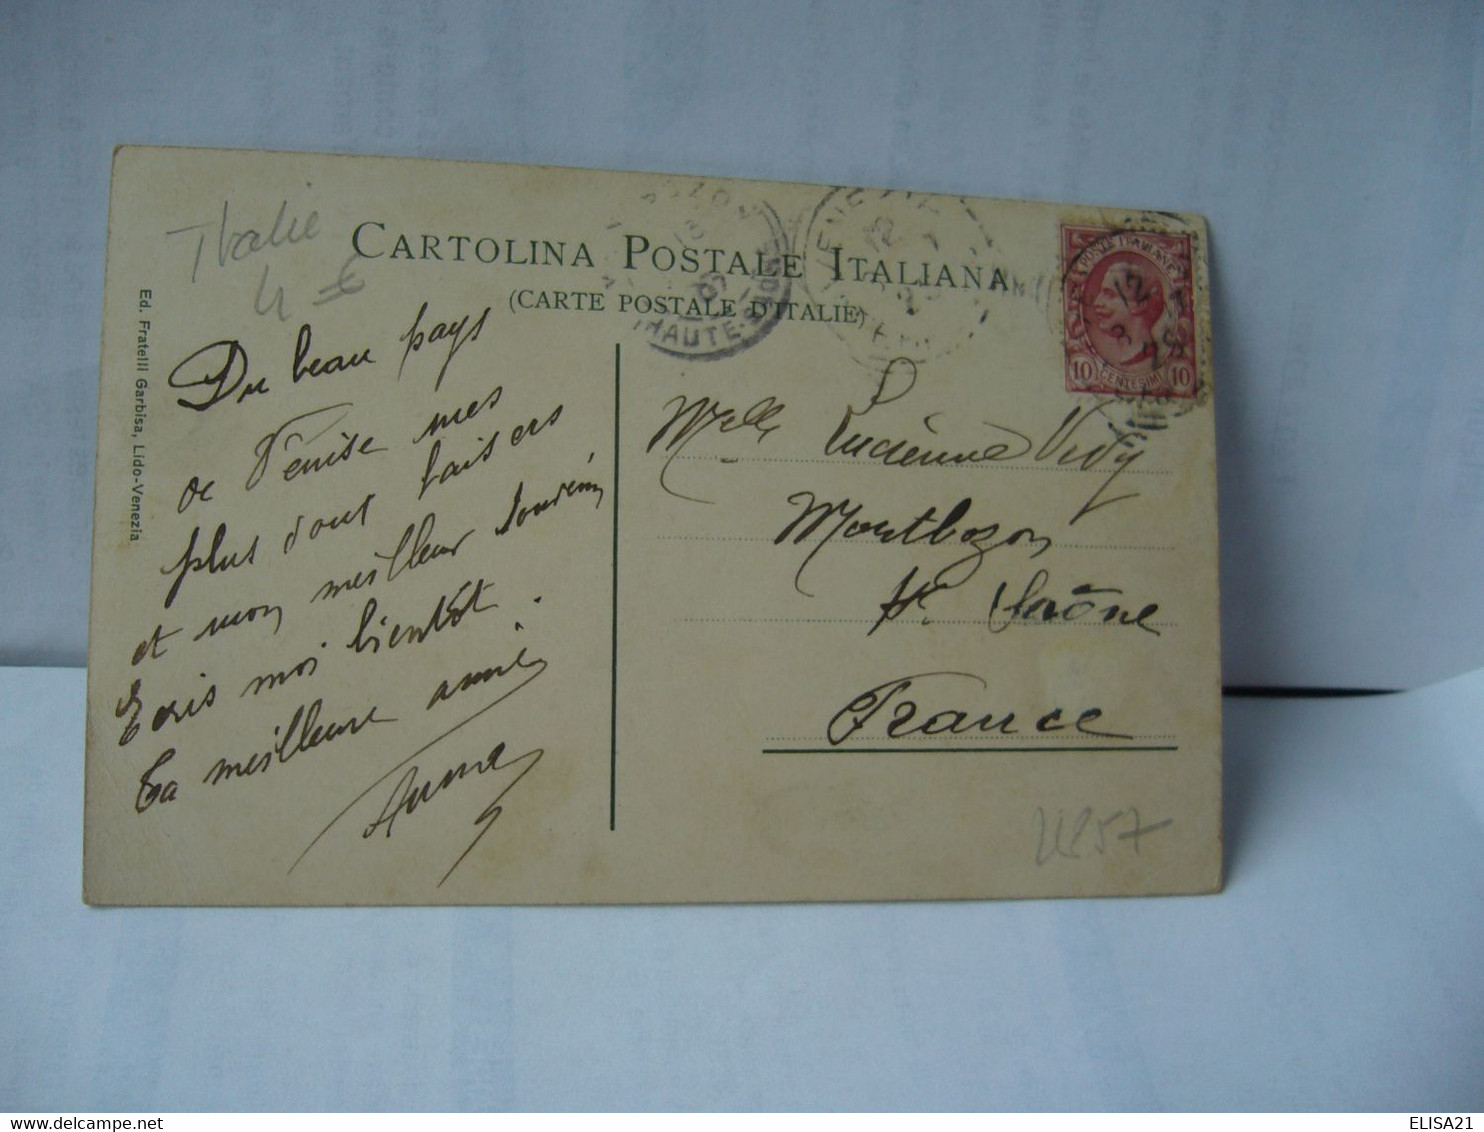 Italie
4 €
CARTOLINA POSTALE ITALIANA
(CARTE POSTALE D'ITALIE)
Ed. Fratelli Garbisa, Lido-Venezia
Du beau pays
de Venise mes
plus doux baisers
et mon meilleur souvenir
Ecris moi bientôt.
Ta meilleure amie
Anna
POSTE ITALIANE
10 CENTESIMI 10
HAUTE-
Melle Lucienne Vidy
Montbozon
Hte Saône
France
ELISA21